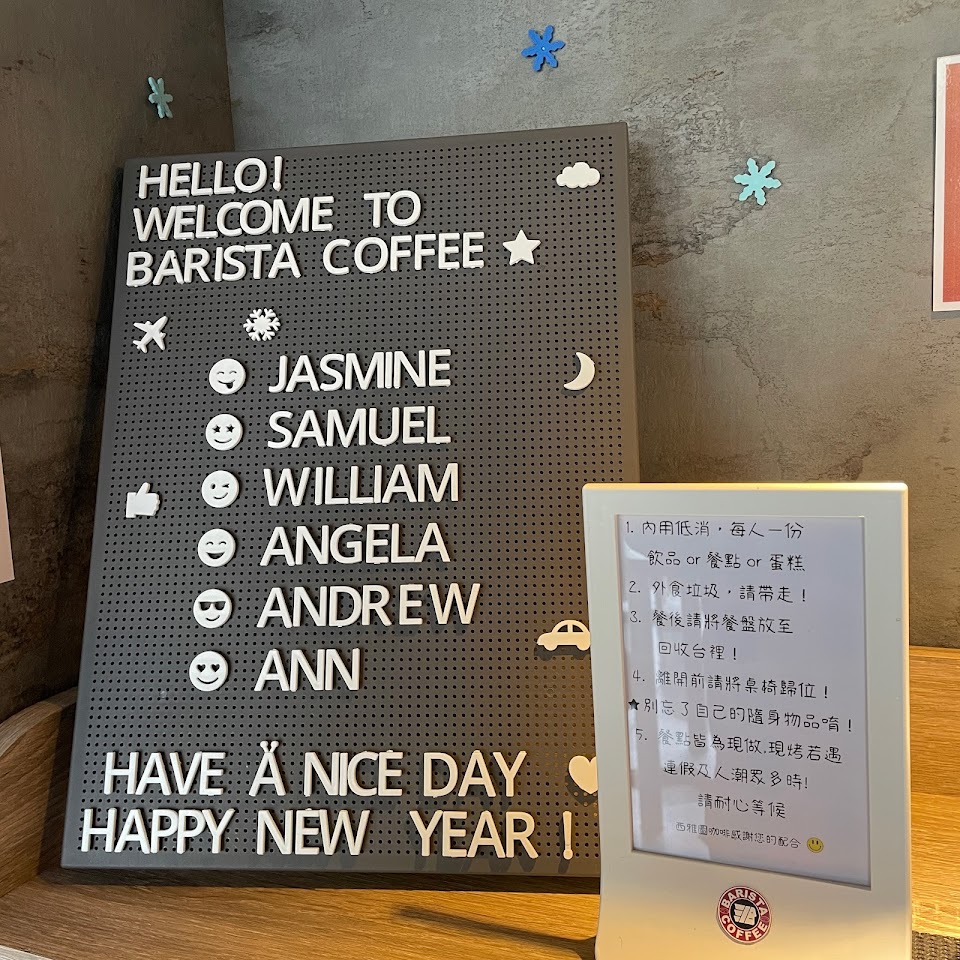 HELLO!
WELCOME TO
BARISTA COFFEE
JASMINE
SAMUEL
WILLIAM
ANGELA
ANDREW
ANN
HAVE Ä NICE DAY
HAPPY NEW YEAR!
1. 內用低消，每人一份
飲品 or 餐點 or 蛋糕
2. 外食垃圾，請帶走！
3. 餐後請將餐盤放至
回收台裡！
4. 離開前請將桌椅歸位！
★別忘了自己的隨身物品唷！
5. 餐點皆為現做.現烤若遇
連假及人潮眾多時!
請耐心等候
西雅圖咖啡感謝您的配合
BARISTA
COFFEE